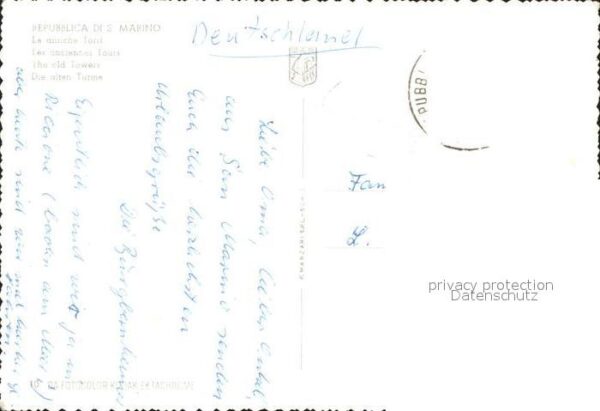 REPUBBLICA DI S. MARINO
Le antiche Torri
Les anciennes Tours
The old Towers
Die alten Türme
Deutschland
PUBB
Liebe Oma, lieber Onkel,
aus San Marino senden
Euch die herzlichsten
Urlaubsgrüße
Die
Eigentlich sind wir ja in
Riccione (baden am Meer)
aber heute sind wir mal
Fam
L.
privacy protection
Datenschutz
DA FOTOCOLOR KODAK EKTACHROME